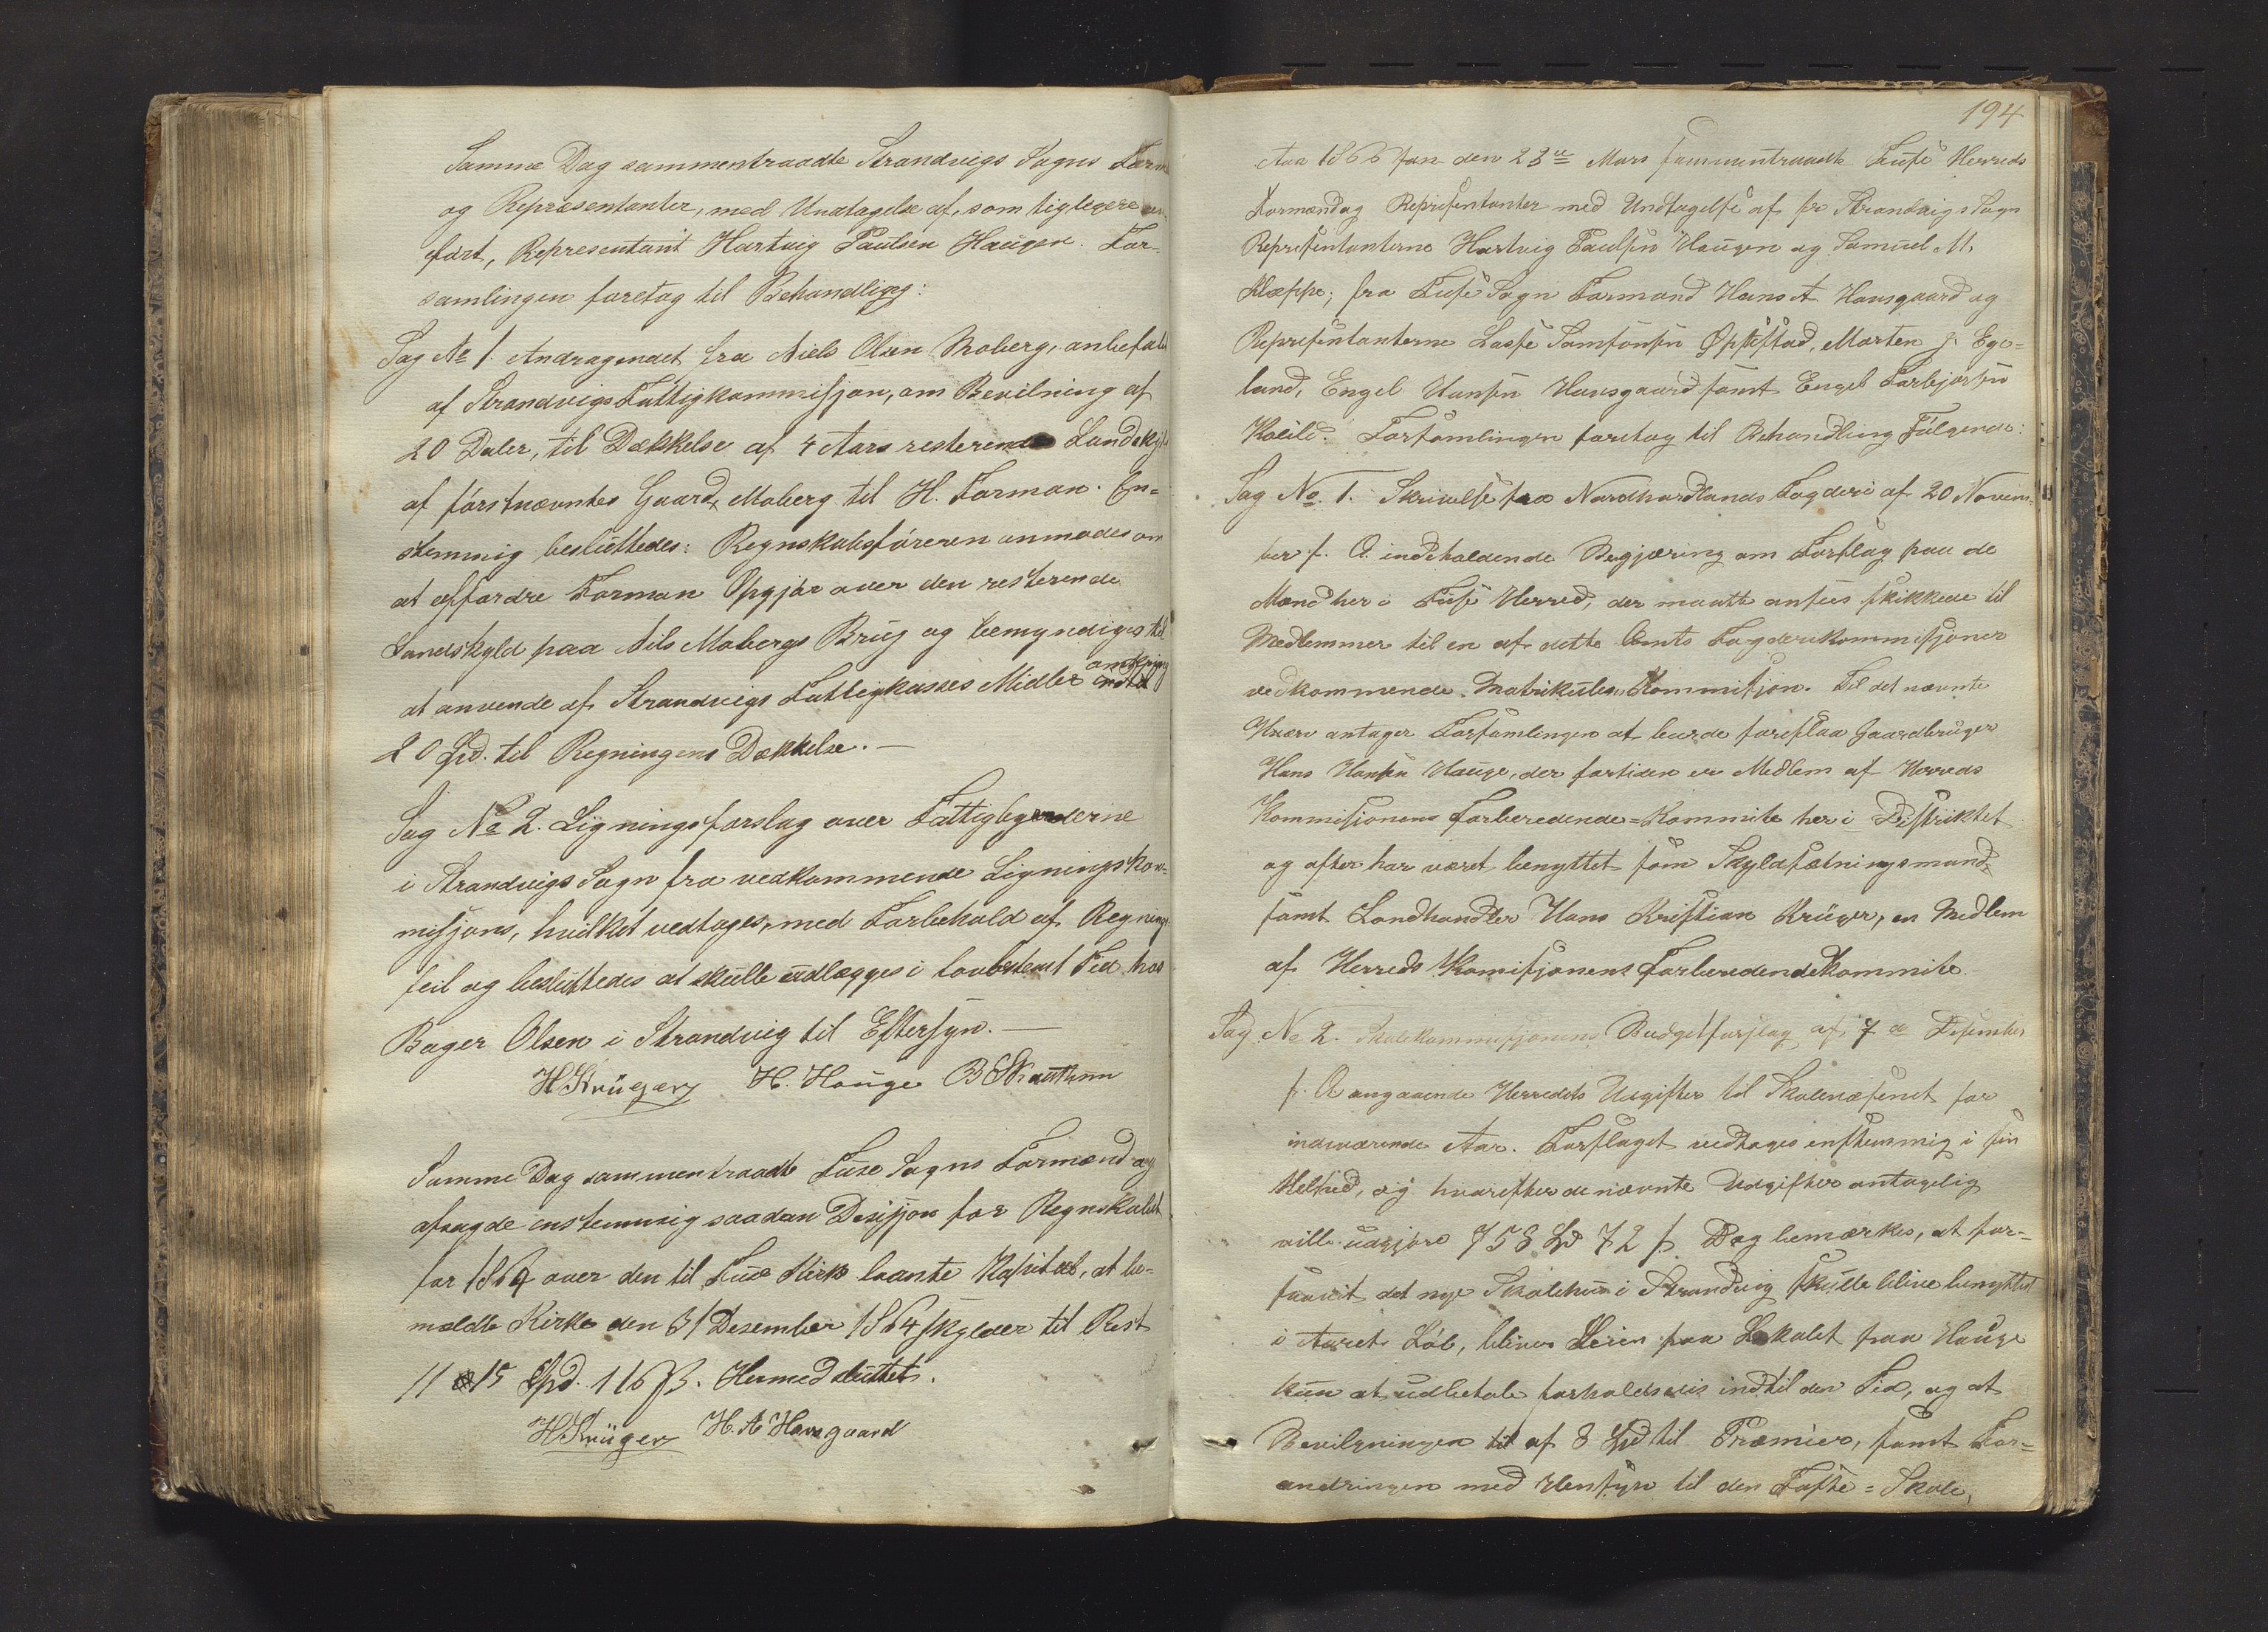 Samme Dag sammentraadte Strandvigs Sogns Form
og Repræsentanter, med Undtagelse af, som tidligere an-
ført, Representant Hartvig Paulsen Haugen. For-
samlingen foretog til Behandling:
Sag № 1. Andragendet fra Niels Olsen Moberg, anbefalet
af Strandvigs Fattigkommissjon, om Bevilning af
20 Daler, til Dækkelse af 4 Aars resterende Landskyld
af førstnævntes Gaard Moberg til H. Forman. En-
stemmig besluttedes: Regnskabsføreren anmodes om
at affordre Forman Opgjør over den resterende
Landskyld paa Nils Mobergs Brug og bemyndiges til
at anvende af Strandvigs Fattigkasses Midler omkring
20 Spd. til Regningens Dækkelse. —
Sag № 2. Ligningsforslag over Fattigbyrderne
i Strandvigs Sogn fra vedkommende Ligningskom-
missjons, hvilket vedtages, med Forbehold af Regnings-
feil og besluttedes at skulle udlægges i lovbestemt Tid hos
Bager Olsen i Strandvig til Eftersyn. —
H Krüger H. Hauge
Samme Dag sammentraadte Fuse Sogns Formænd og
afsagde enstemmig saadan Desisjon for Regnskabet
for 1864 over den til Fuse Kirke laante Kapital, at be-
meldte Kirke den 31 Desember 1864 skylder til Rest
11 15 Spd. 116 ß. Hermed sluttet.
H Krüger H. A Havsgaard
194
Aar 1866 den 23de Mars sammentraadte Fuse Herreds
Formænd og Repræsentanter med Undtagelse af fra Strandvigs Sogn
Repræsentanterne Hartvig Paulsen Haugen og Samuel M.
Kleppe; fra Fuse Sogn Formand Hans A. Havsgaard og
Repræsentanterne Lasse Samsonsen Øpstestad, Morten J. Ege-
land, Engel Hansen Havsgaard samt Engel Torbjørsen
Kolild. Forsamlingen foretog til Behandling Følgende:
Sag № 1. Skrivelse fra Nordhordlands Fogderi af 20 Novem-
ber f. A. indeholdende Begjæring om Forslag paa de
Mænd her i Fuse Herred, der maatte ansees skikkede til
Medlemmer til en af dette Amts Fogderikommissjoner
vedkommende Matrikulerings Kommissjon. Til det nævnte
Hverv antager Forsamlingen at burde foreslaa Gaardbruger
Hans Hansen Hauge, der fortiden er Medlem af Herreds
Kommissionens Forberedende-Kommite her i Distriktet
og ofter har været benyttet som Skyldsætningsmand,
samt Landhandler Hans Kristian Krüger, en Medlem
af Herreds Komissjonens ForberedendeKommite.
Sag № 2. Skolekommissjonens Budgetforslag af 7de Desember
f. A angaaende Herredets Udgifter til Skolevæsenet for
indeværende Aar. Forslaget vedtoges enstemmig i sin
Helhed, og hvorefter de nævnte Udgifter antagelig
ville udgjøre 758 Spd 72 ß. Dog bemærkes, at for-
saavit det nye Skolehus i Strandvig skulde blive benyttet
i Aarets Løb, bliver Leien paa Lokalet paa Hauge
kun at udbetale forholdsvis indtil den Tid, og at
Bevilgningen til af 8 Spd til Præmier, samt For-
andringen med Hensyn til den Faste-Skole,